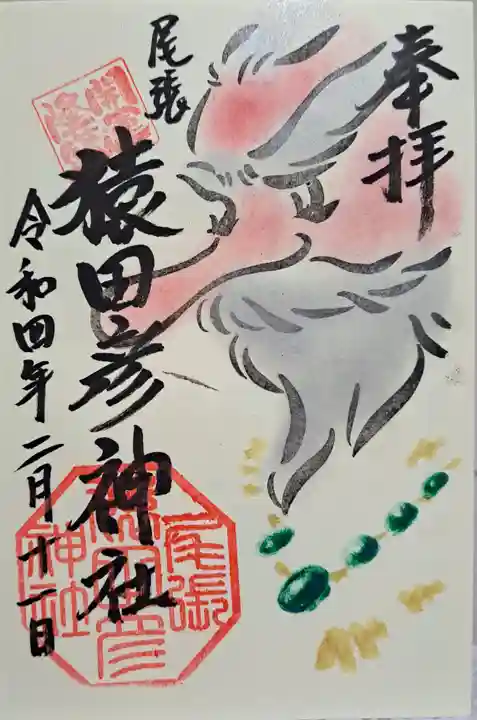 奉拝
尾張
猿田彦神社
令和四年二月十一日
尾張
猿田彦
神社